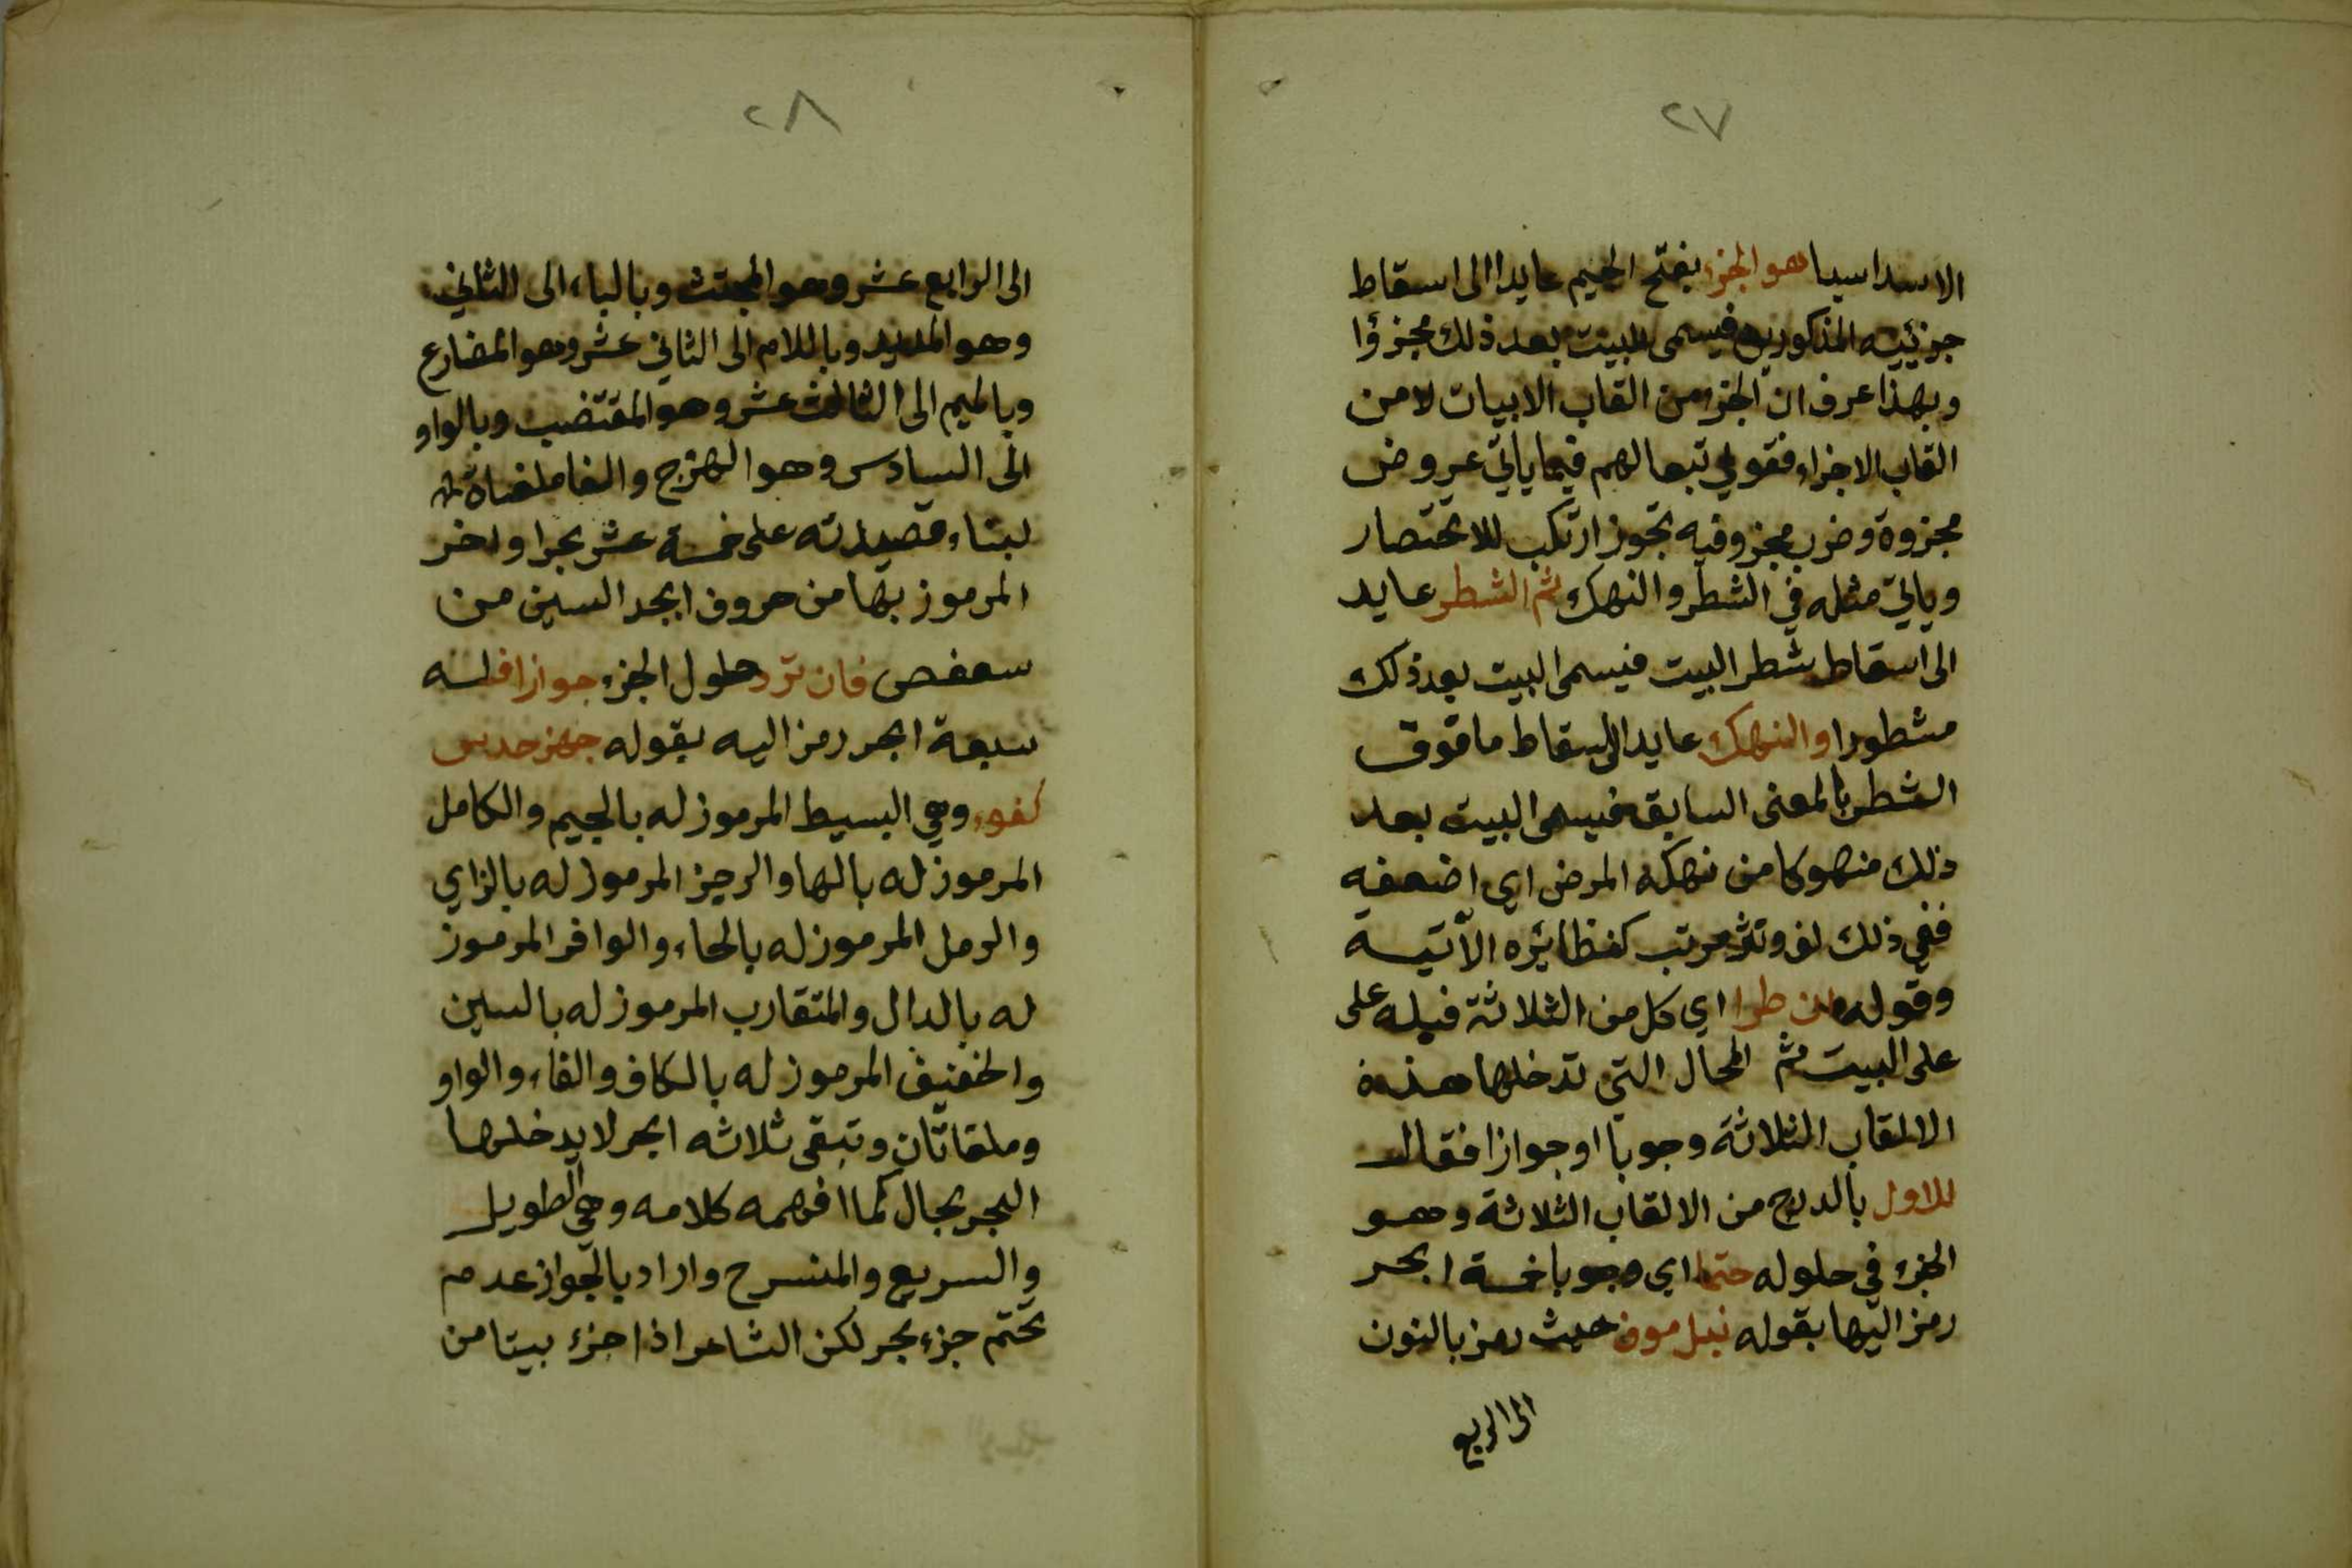 ٢٧
الاسداسيا هو الجزء بفتح الجيم عايدا الى اسقاط
جزئيه المذكورين فيسمى البيت بعد ذلك مجزؤا
وبهذا عرف ان الجزء من القاب الابيات لا من
القاب الاجزاء فقولي تبعا لهم فيما ياتي عروض
مجزوة وضرب مجزو فيه تجوز ارتكب للاختصار
وياتي مثله في الشطر والنهك ثم الشطر عايد
الى اسقاط شطر البيت فيسمى البيت بعد ذلك
مشطورا والنهك عايدا الى اسقاط ما فوق
الشطر بالمعنى السابق فيسمى البيت بعد
ذلك منهوكا من نهكه المرض اي اضعفه
ففي ذلك لف ونشر مرتب كنظايره الآتية
وقوله طرا اي كل من الثلاثة فيله على
على البيت ثم المحال التي تدخلها هذه
الالقاب الثلاثة وجوبا او جوازا فقال
للاول بالدرج من الالقاب الثلاثة وهو
الجزء في حلوله حتما اي وجوبا خمسة ابحر
رمز اليها بقوله نبل موف حيث رمز بالنون
الى الربع
٢٨
الى الرابع عشر وهو المجتث وبالباء الى الثاني
وهو المديد وباللام الى الثاني عشر وهو المضارع
وبالميم الى الثالث عشر وهو المقتضب وبالواو
الى السادس وهو الهزج والفا ملغاة
لبناء قصيدته على خمسة عشر بحرا واخر
المرموز بها من حروف ابجد السين من
سعفص فان ترد حلول الجزء جوازا فله
سبعة ابحر رمز اليه بقوله جهز حدس
كفو وهي البسيط المرموز له بالجيم والكامل
المرموز له بالها والرجز المرموز له بالزاي
والرمل المرموز له بالحاء والوافر المرموز
له بالدال والمتقارب المرموز له بالسين
والخفيف المرموز له بالكاف والفاء والواو
وملقاتان وتبقى ثلاثه ابحر لا يدخلها
البحر بحال كما افهمه كلامه وهي الطويل
والسريع والمنسرح واراد بالجواز عدم
تحتم جزء بحر لكن الشاعر اذا جزء بيتا من